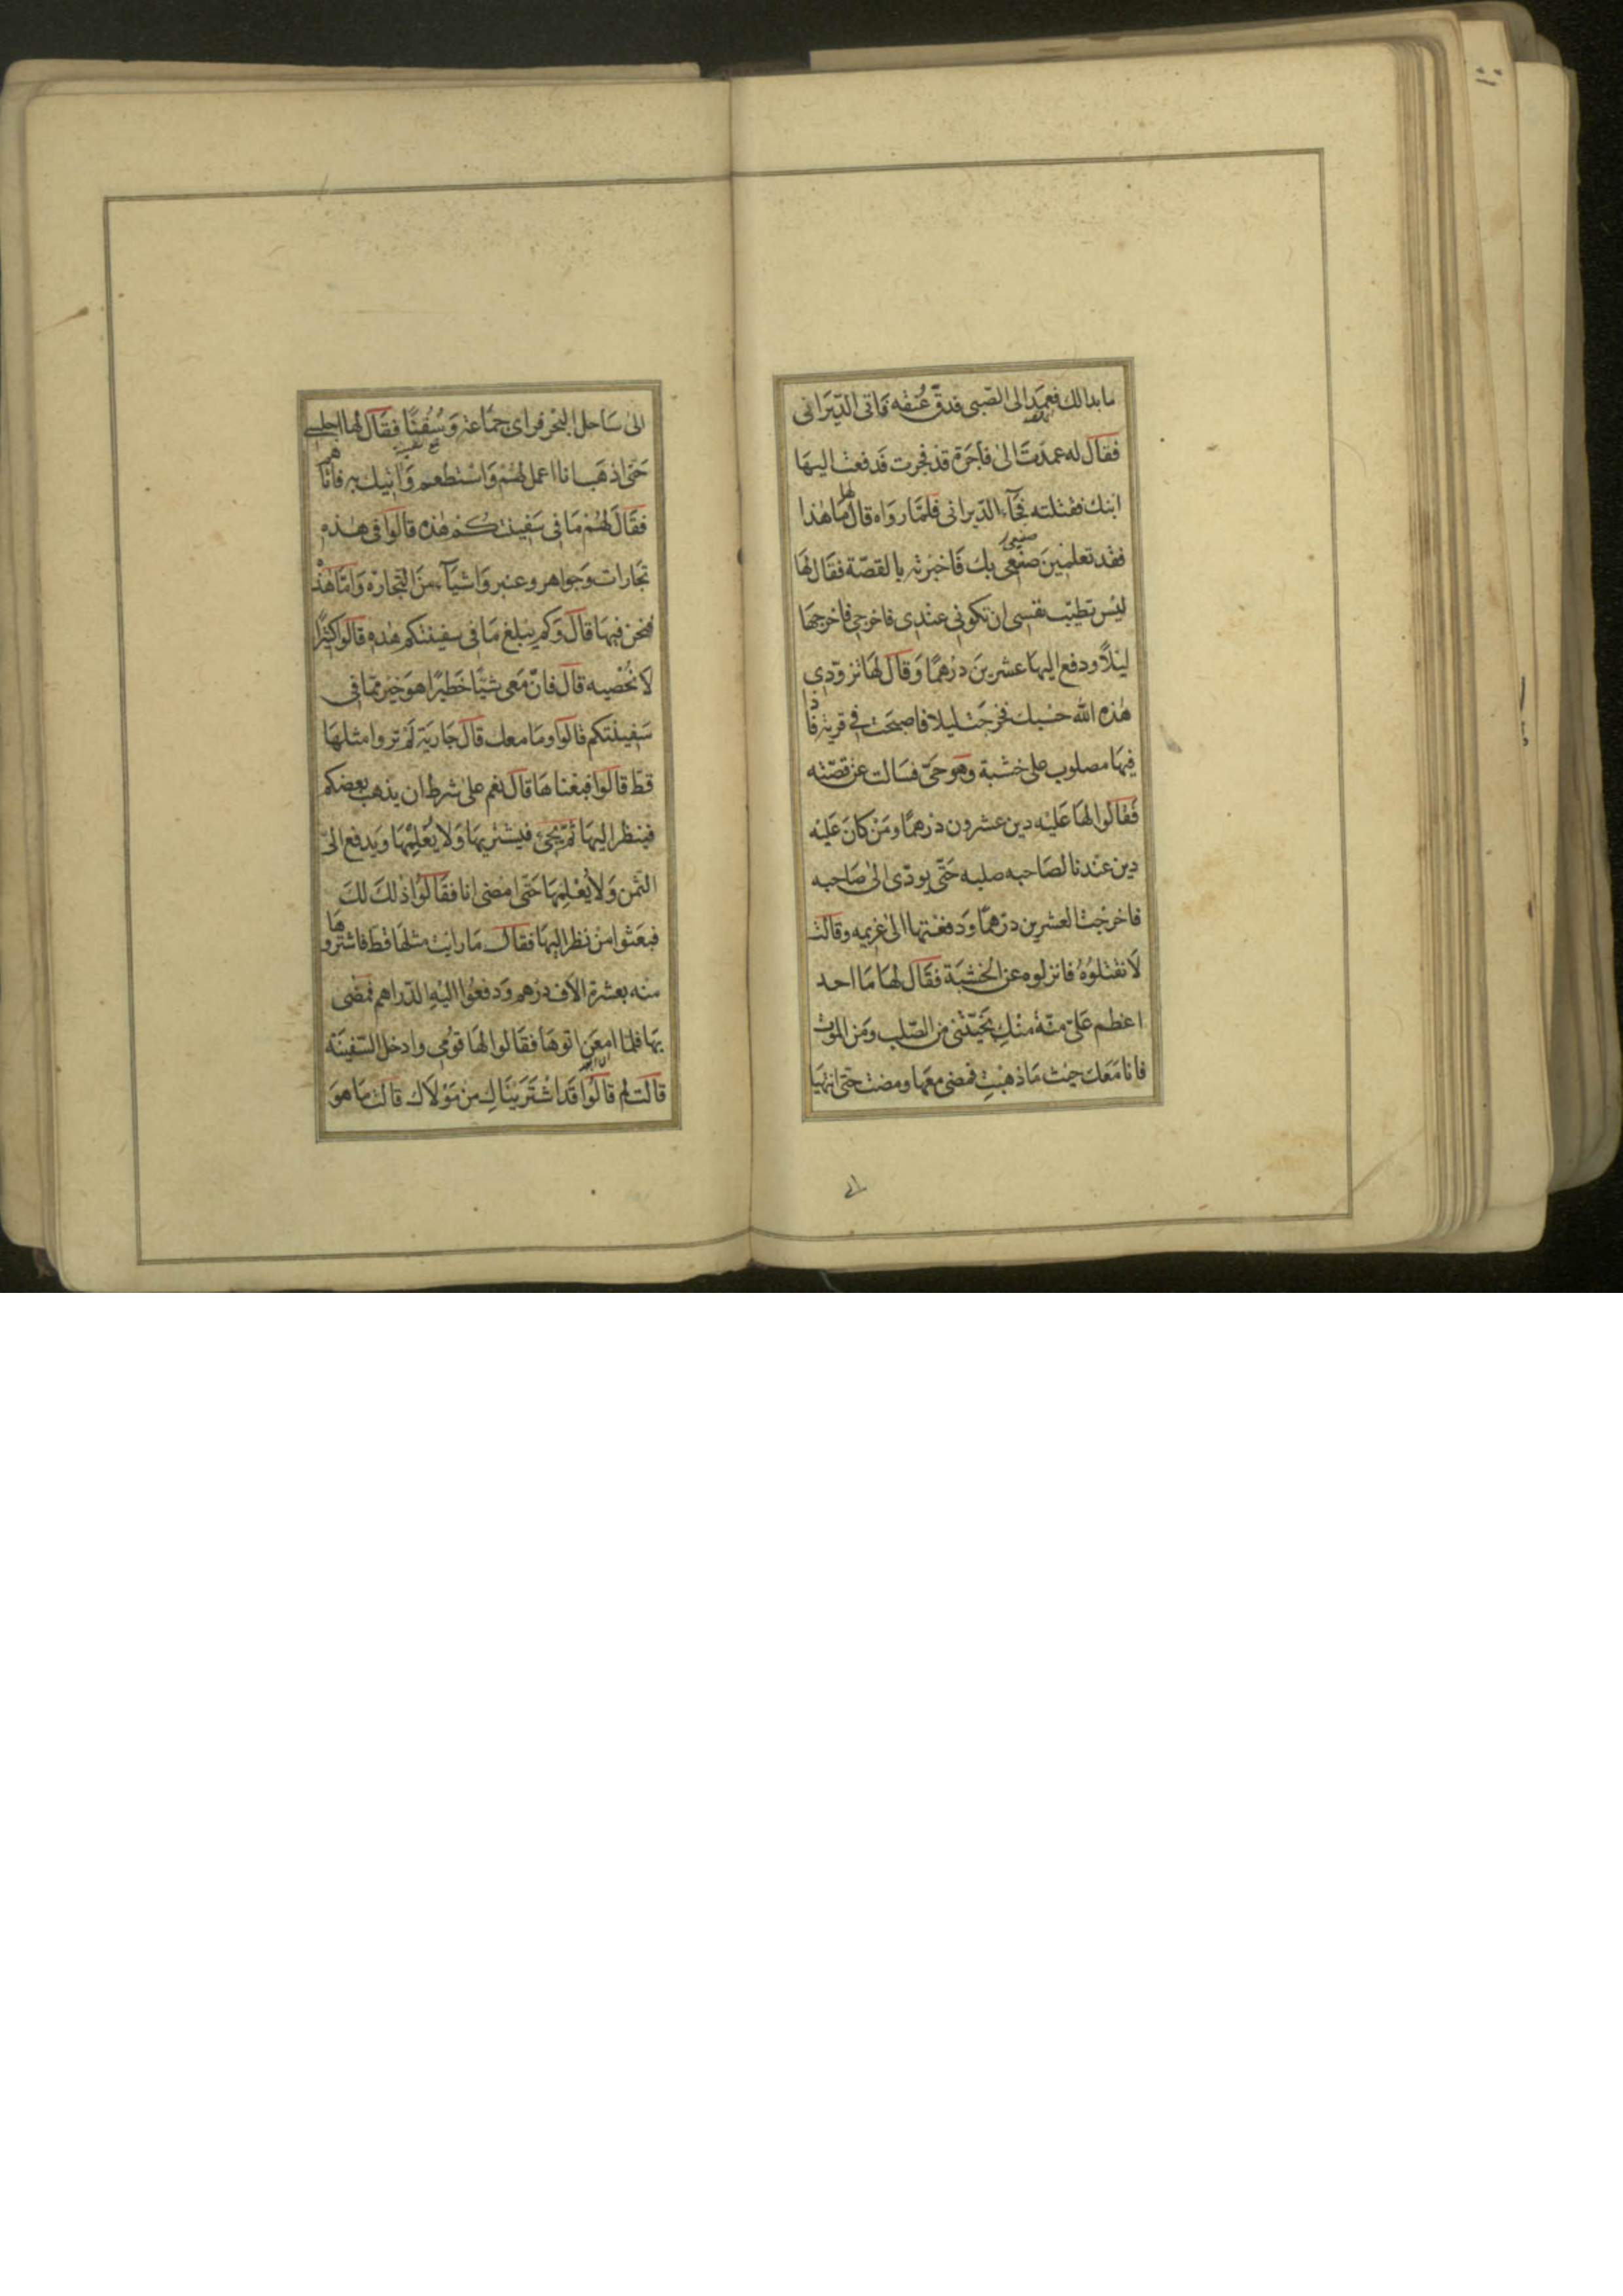 ما بدالك فعمد الى الصّبى فدقّ عُنقه فَاتى الدّيرَانى
فقال له عمدتَ الىٰ فاجرة قد فجرت فدفعت اليهَا
ابنك فقتلته فجآء الدّيرانى فلمّا رواه قال لها مَا هٰذا
فقد تعلمينَ صنعى بك فَاخبرته بالقصّة فقال لهَا
ليْس تطيّب نفسى ان تكونى عندى فاخرجى فاخرجهَا
ليْلاً ودفع اليهَا عشرينَ درْهمًا وَقال لهَا تزوّدى
هٰذه الله حسْبك فخرجَت ليلا فاصبحَت فى قرية فاذا
فيهَا مصلوب على خشبة وهو حىّ فسَالت عن قصّته
فَقالُوا لهَا عَليْه دين عشرون درْهمًا ومَنْ كانَ عَليْه
دين عنْدنا لصَاحبه صلبه حَتّى يودّى الىٰ صَاحبه
فاخرجْت العشرين درْهمًا ودفعْتها الىٰ غريمه وقالت
لاَ تقْتلوُهُ فانزلوه عن الخشبَة فقَال لهَا مَا احد
اعظم عَلىّ منّةً منْكِ نجّيتْنى من الصّلب ومَن الموْت
فانا مَعَك حيْث مَا ذهبْتِ فمضى معهَا ومضت حتّى انتهيَا
الىٰ سَاحل البحْر فراى جمَاعة وَسُفنًا فقَال لهَا اجلسى
حَتّى اذهَب انا اعمل لهُمْ وَاسْتطعم وَاٰتيك به فاتاهم
فقَالَ لهُمْ مَا فى سَفينتكُمْ هٰذه قالوُا فى هٰذه
تجَارات وَجواهر وعنبر وَاشيَآء منَ التجارة وَامّا هٰذه
فنحن فيهَا قَال وَكم يبْلغ مَا فى سفينتكم هٰذه قالوا كثيرًا
لا نُحْصيه قال فانّ مَعى شيْئًا خَطيْرًا هوَ خيْر ممّا فى
سَفينتكم قالوا وما معك قال جاريَة لمْ تروا مثلهَا
قطّ قالوا فبعْناهَا قال نعم على شرط ان يذهب بعضكم
فينظر اليهَا ثمّ يجىء فيشتريهَا وَلا يُعْلِمْهَا وَيدفع الىّ
الثّمن وَلا يُعْلِمهَا حَتّى امْضى انا فقَالوُا ذٰلكَ لكَ
فبعَثوا منْ نظر اليهَا فقال مَا رايْت مثلهَا قطّ فاشتروها
منه بعشرة اٰلاَف درْهم وَدفعُوا اليْهِ الدّراهم فمَضى
بهَا فلمّا امعَن اتوهَا فقَالوا لهَا قومى وادخل السّفينَة
قالت لم قالوُا قَد اشْتَرَيْنَاكِ من مَوْلاَك قالت مَا هوَ